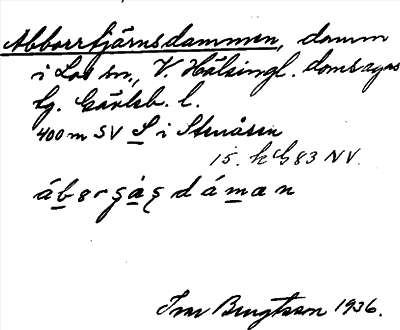 Abborrtjärnsdammen, damm
i Los sn., V. Hälsingl. domsagas
tg. Gävleb. l.
400 m SV S i Stenåsen
15. h G 83 NV.
Ivar Bengtsson 1936.